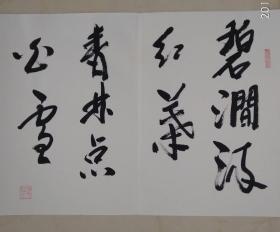 碧澗流
红葉
青林点
白雲
201